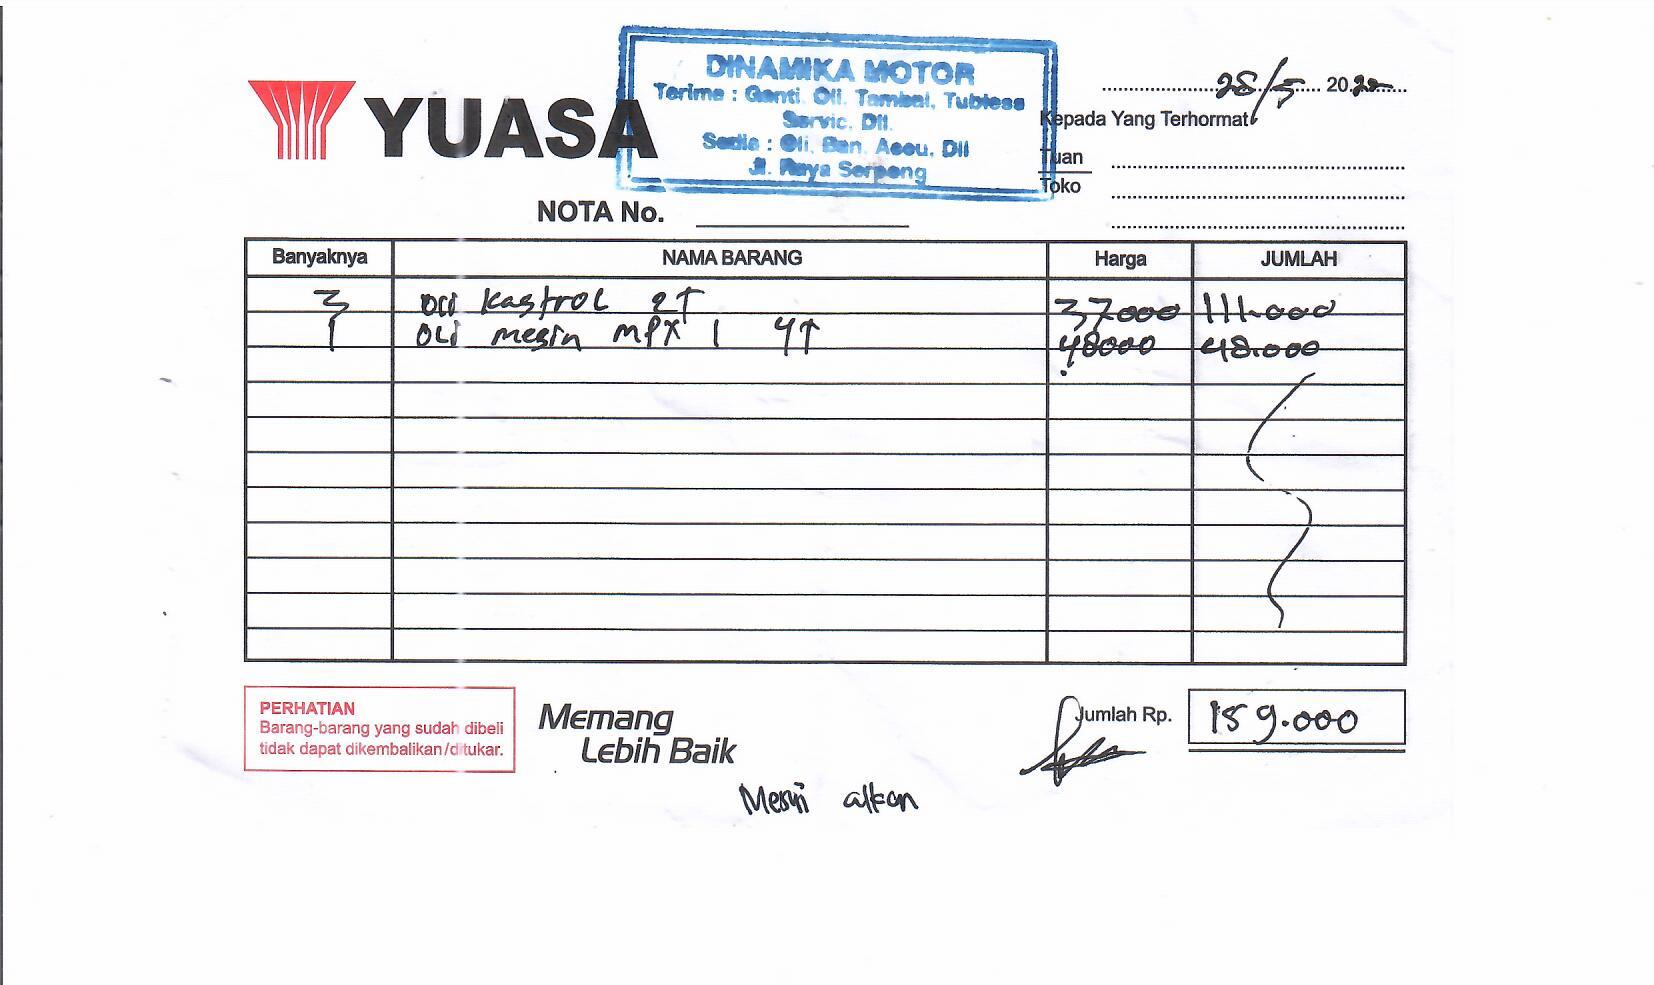 DINAMIKA MOTOR
Terima : Ganti. Oli. Tambal, Tubless
Servic. Dll.
Sedia : Oli. Ban. Accu. Dll
Jl. Raya Serpong
YUASA
28/5 2020
Kepada Yang Terhormat
Tuan
Toko
NOTA No.
Banyaknya NAMA BARANG Harga JUMLAH
3 OLI Kastrol 2T 37000 111.000
1 OLI mesin MPX 1 4T 48000 48.000
PERHATIAN
Barang-barang yang sudah dibeli
tidak dapat dikembalikan/ditukar.
Memang
Lebih Baik
Jumlah Rp. 159.000
Mesin alkon